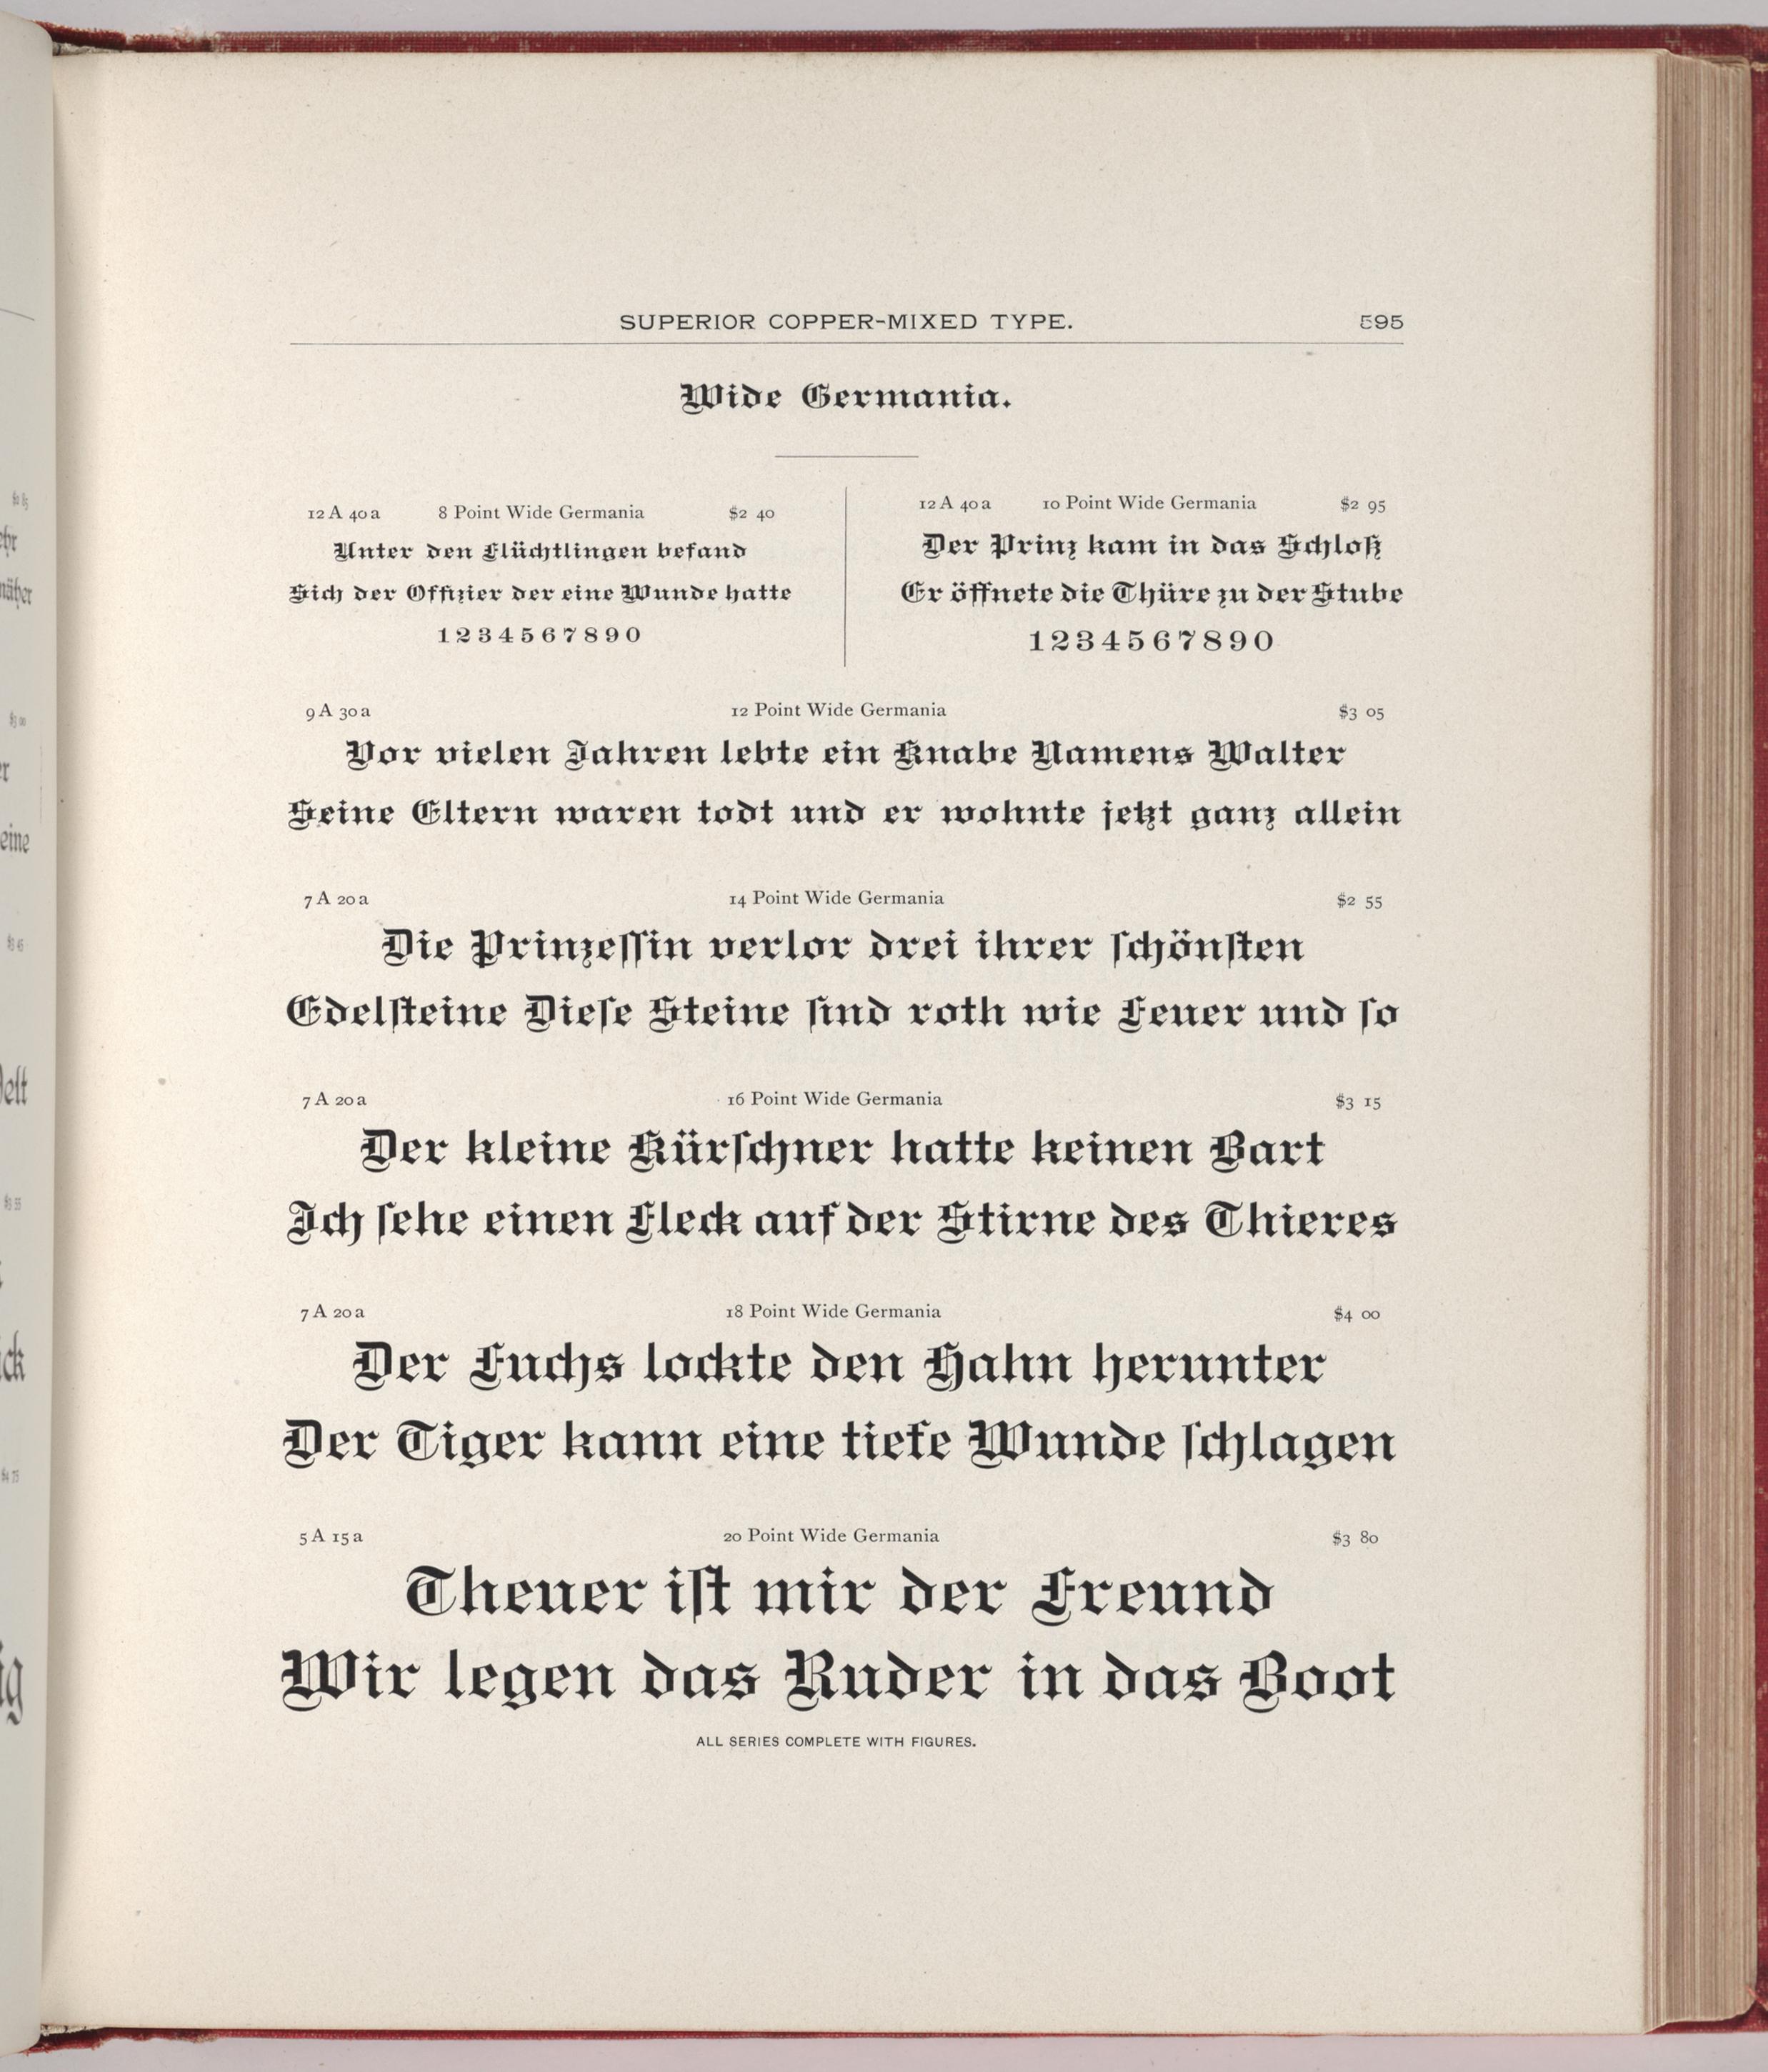 SUPERIOR COPPER-MIXED TYPE. 595
Wide Germania.
12 A 40 a 8 Point Wide Germania $2 40
Unter den Flüchtlingen befand
Sich der Offizier der eine Wunde hatte
1 2 3 4 5 6 7 8 9 0
12 A 40 a 10 Point Wide Germania $2 95
Der Prinz kam in das Schloß
Er öffnete die Thüre zu der Stube
1 2 3 4 5 6 7 8 9 0
9 A 30 a 12 Point Wide Germania $3 05
Vor vielen Jahren lebte ein Knabe Namens Walter
Seine Eltern waren todt und er wohnte jetzt ganz allein
7 A 20 a 14 Point Wide Germania $2 55
Die Prinzeſſin verlor drei ihrer ſchönſten
Edelſteine Dieſe Steine ſind roth wie Feuer und ſo
7 A 20 a 16 Point Wide Germania $3 15
Der kleine Kürſchner hatte keinen Bart
Ich ſehe einen Fleck auf der Stirne des Thieres
7 A 20 a 18 Point Wide Germania $4 00
Der Fuchs lockte den Hahn herunter
Der Tiger kann eine tiefe Wunde ſchlagen
5 A 15 a 20 Point Wide Germania $3 80
Theuer iſt mir der Freund
Wir legen das Ruder in das Boot
ALL SERIES COMPLETE WITH FIGURES.